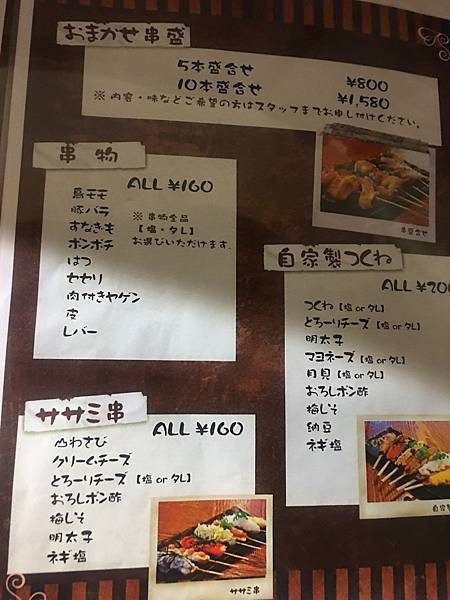 おまかせ串盛
5本盛合せ ¥800
10本盛合せ ¥1,580
※ 内容・味などご希望の方はスタッフまでお申し付けください。
串盛合せ
串物
ALL ¥160
鳥モモ
豚バラ
すなぎも
ボンボチ
はつ
セセリ
肉付きヤゲン
皮
レバー
※ 串物全品
【塩・タレ】
お選びいただけます。
自家製つくね
ALL ¥200
つくね【塩 or タレ】
とろーりチーズ【塩 or タレ】
明太子
マヨネーズ【塩 or タレ】
月見【塩 or タレ】
おろしポン酢
梅じそ
納豆
ネギ塩
自家製
ササミ串
ALL ¥160
山わさび
クリームチーズ
とろーりチーズ【塩 or タレ】
おろしポン酢
梅じそ
明太子
ネギ塩
ササミ串